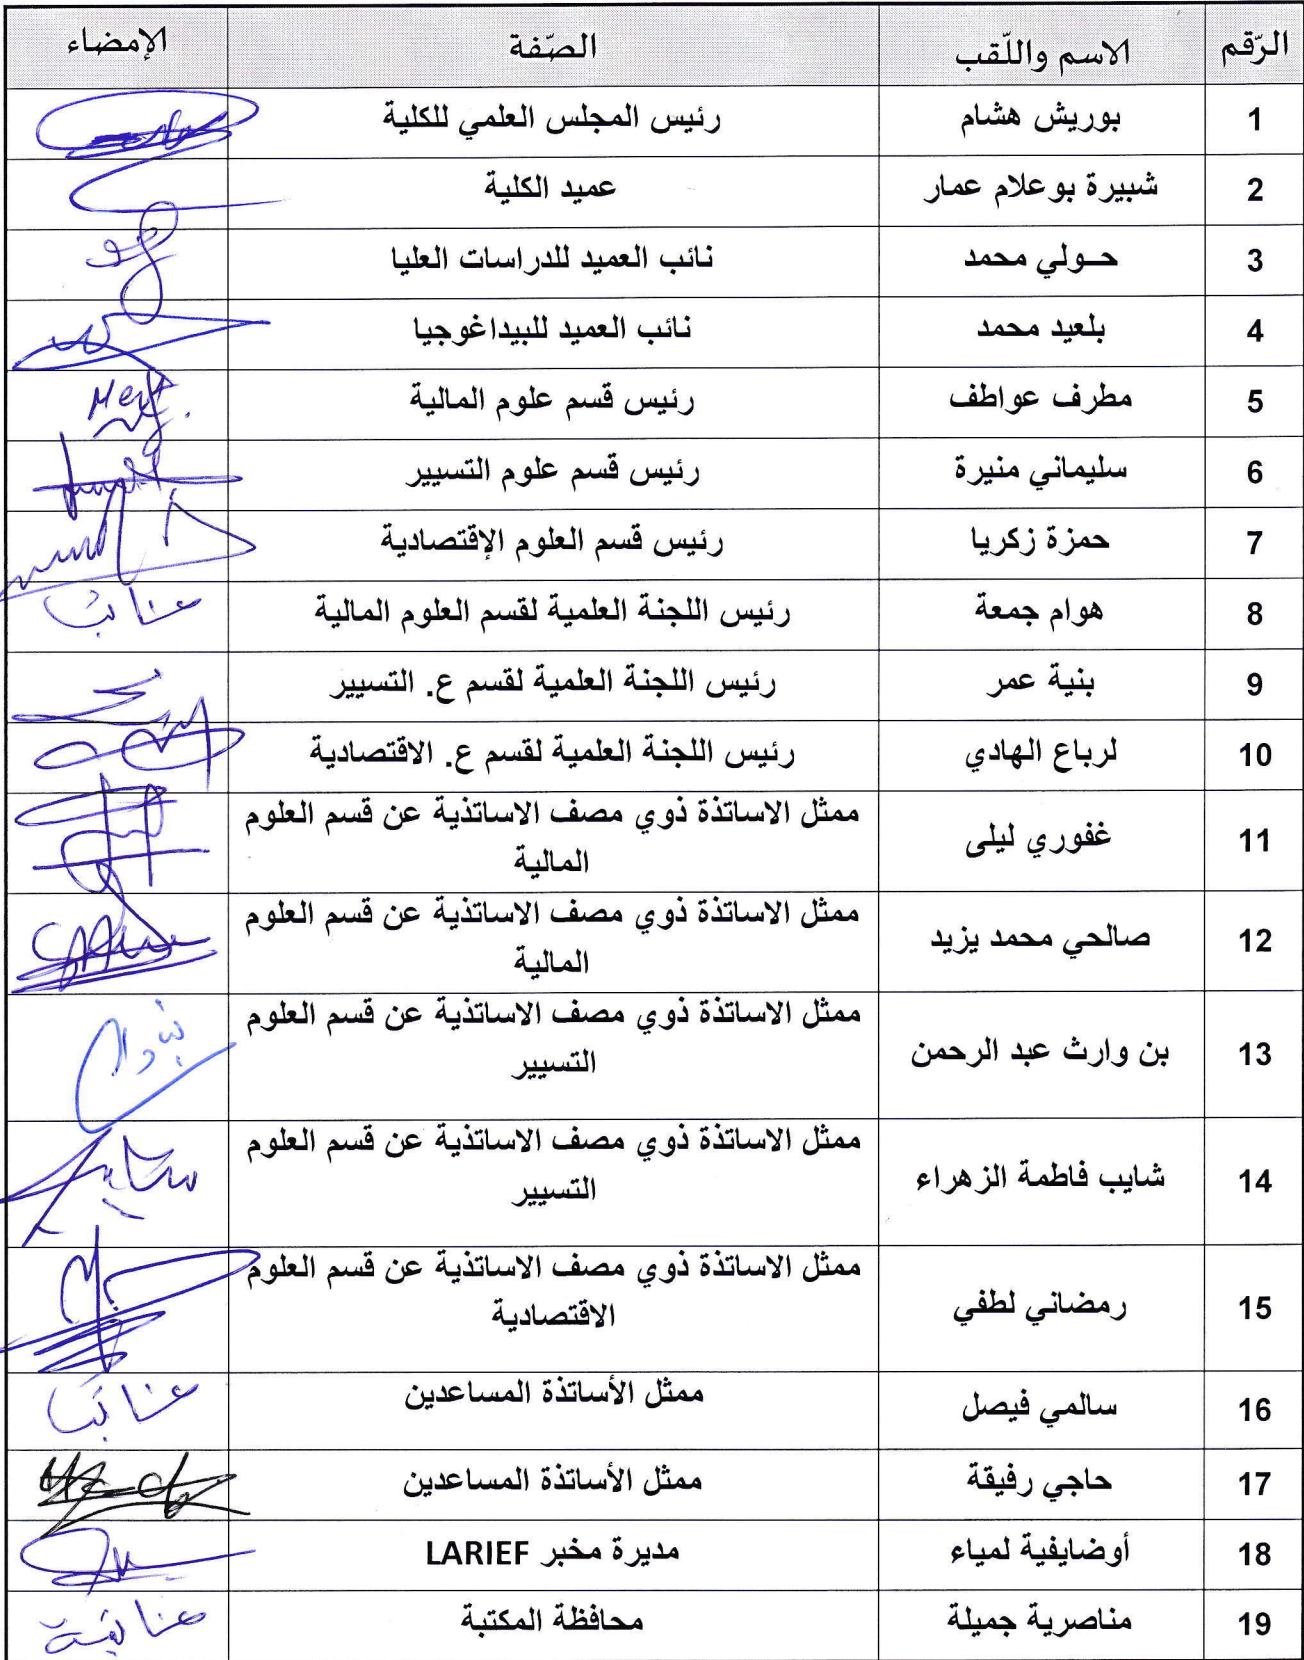 الرّقم الاسم واللّقب الصّفة الإمضاء
1 بوريش هشام رئيس المجلس العلمي للكلية
2 شبيرة بوعلام عمار عميد الكلية
3 حولي محمد نائب العميد للدراسات العليا
4 بلعيد محمد نائب العميد للبيداغوجيا
5 مطرف عواطف رئيس قسم علوم المالية
6 سليماني منيرة رئيس قسم علوم التسيير
7 حمزة زكريا رئيس قسم العلوم الإقتصادية
8 هوام جمعة رئيس اللجنة العلمية لقسم العلوم المالية
9 بنية عمر رئيس اللجنة العلمية لقسم ع. التسيير
10 لرباع الهادي رئيس اللجنة العلمية لقسم ع. الاقتصادية
11 غفوري ليلى ممثل الاساتذة ذوي مصف الاساتذية عن قسم العلوم
المالية
12 صالحي محمد يزيد ممثل الاساتذة ذوي مصف الاساتذية عن قسم العلوم
المالية
13 بن وارث عبد الرحمن ممثل الاساتذة ذوي مصف الاساتذية عن قسم العلوم
التسيير
14 شايب فاطمة الزهراء ممثل الاساتذة ذوي مصف الاساتذية عن قسم العلوم
التسيير
15 رمضاني لطفي ممثل الاساتذة ذوي مصف الاساتذية عن قسم العلوم
الاقتصادية
16 سالمي فيصل ممثل الأساتذة المساعدين
17 حاجي رفيقة ممثل الأساتذة المساعدين
18 أوضايفية لمياء مديرة مخبر LARIEF
19 مناصرية جميلة محافظة المكتبة